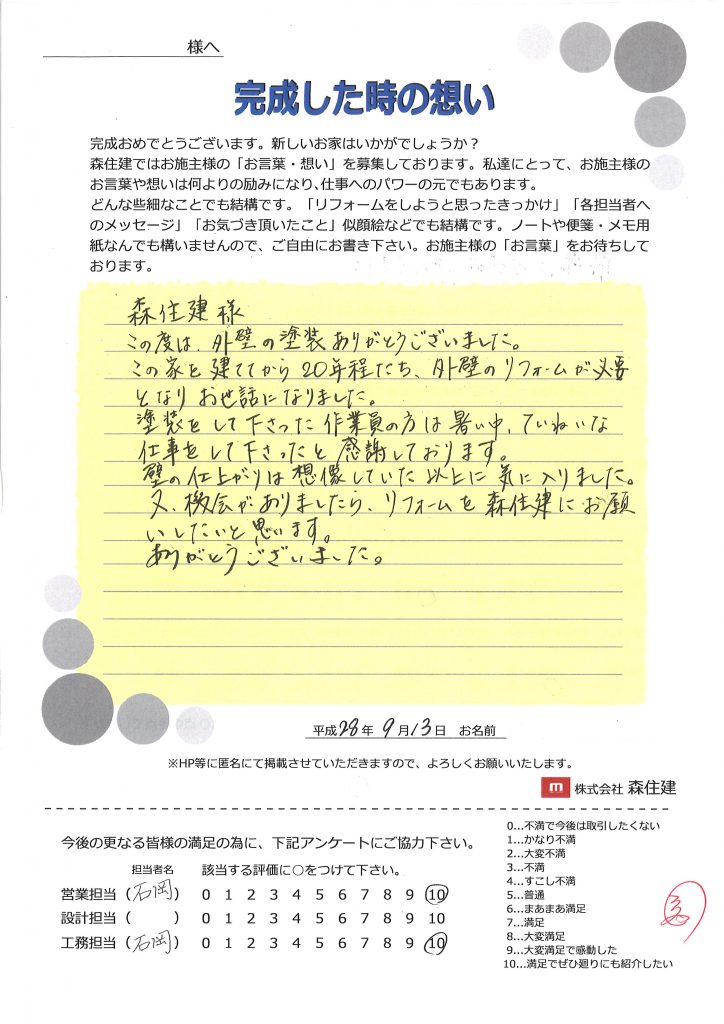 様へ
完成した時の想い
完成おめでとうございます。新しいお家はいかがでしょうか？
森住建ではお施主様の「お言葉・想い」を募集しております。私達にとって、お施主様の
お言葉や想いは何よりの励みになり、仕事へのパワーの元でもあります。
どんな些細なことでも結構です。「リフォームをしようと思ったきっかけ」「各担当者へ
のメッセージ」「お気づき頂いたこと」似顔絵などでも結構です。ノートや便箋・メモ用
紙なんでも構いませんので、ご自由にお書き下さい。お施主様の「お言葉」をお待ちして
おります。
森住建様
この度は、外壁の塗装ありがとうございました。
この家を建ててから20年程たち、外壁のリフォームが必要
となりお世話になりました。
塗装をして下さった作業員の方は暑い中、ていねいな
仕事をして下さったと感謝しております。
壁の仕上がりは想像していた以上に気に入りました。
又、機会がありましたら、リフォームを森住建にお願
いしたいと思います。
ありがとうございました。
平成28年 9月13日 お名前
※HP等に匿名にて掲載させていただきますので、よろしくお願いいたします。
m 株式会社 森住建
今後の更なる皆様の満足の為に、下記アンケートにご協力下さい。
担当者名 該当する評価に○をつけて下さい。
営業担当（石岡） 0 1 2 3 4 5 6 7 8 9 10
設計担当（ ） 0 1 2 3 4 5 6 7 8 9 10
工務担当（石岡） 0 1 2 3 4 5 6 7 8 9 10
0…不満で今後は取引したくない
1…かなり不満
2…大変不満
3…不満
4…すこし不満
5…普通
6…まあまあ満足
7…満足
8…大変満足
9…大変満足で感動した
10…満足でぜひ廻りにも紹介したい